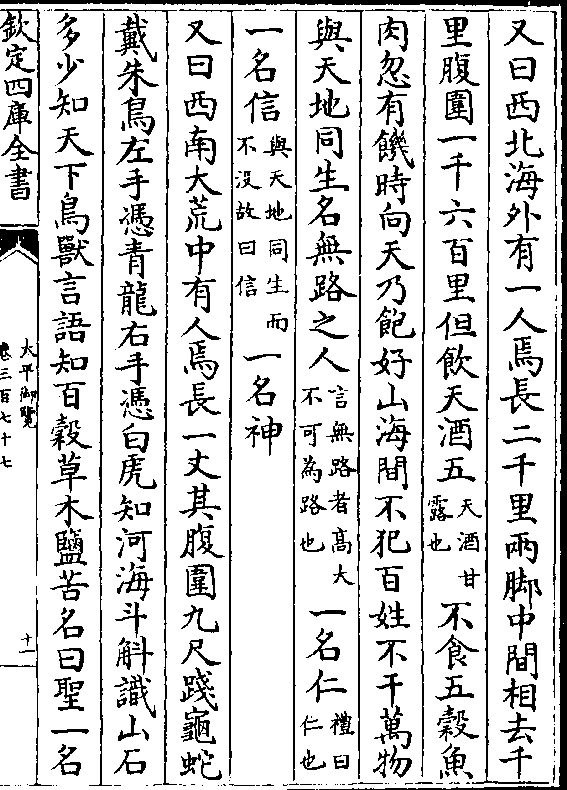 又曰西北海外有一人焉長二千里兩脚中間相去千
里腹圍一千六百里但飲天酒五天酒甘露也不食五穀魚
肉忽有饑時向天乃飽好山海間不犯百姓不干萬物
與天地同生名無路之人言無路者高大不可為路也一名仁禮曰仁也
一名信與天地同生而不没故曰信一名神
又曰西南大荒中有人焉長一丈其腹圍九尺踐龜蛇
戴朱鳥左手憑青龍右手憑白虎知河海斗斛識山石
多少知天下鳥獸言語知百穀草木鹽苦名曰聖一名
欽定四庫全書
太平御覽
卷三百七十七
十一